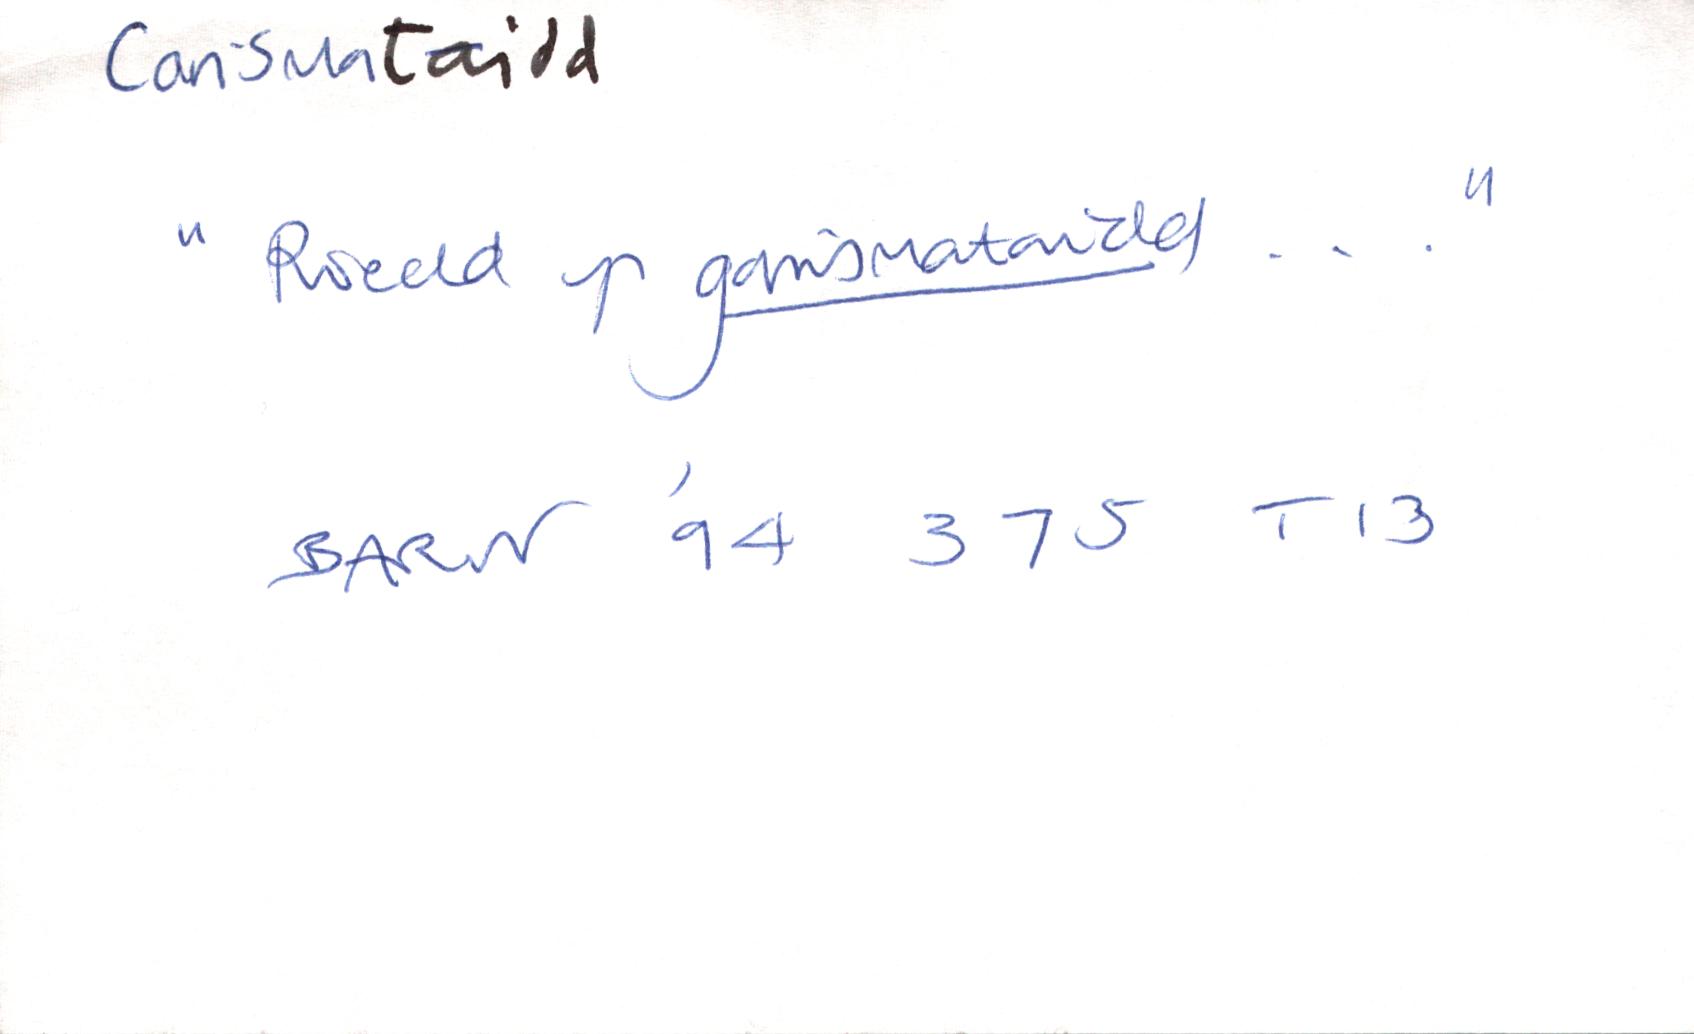 Carismataidd
" Roedd yn garismataidd . . . "
BARN '94 375 T13